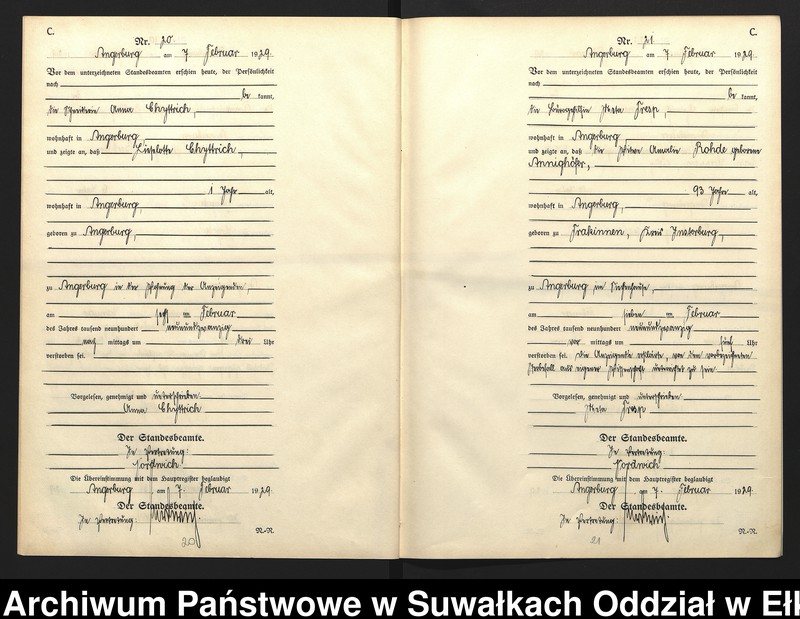 C.
Nr. 20.
Angerburg am 7. Februar 1929.
Vor dem unterzeichneten Standesbeamten erschien heute, der Persönlichkeit
nach
be kannt,
die Anna Chyttrich,
wohnhaft in Angerburg,
und zeigte an, daß Lieselotte Chyttrich,
1 Jahr alt,
wohnhaft in Angerburg,
geboren zu Angerburg,
zu Angerburg in der Wohnung der Anzeigenden,
am sechs ten Februar
des Jahres tausend neunhundert neunundzwanzig
nach mittags um drei Uhr
verstorben sei.
Vorgelesen, genehmigt und unterschrieben
Anna Chyttrich
Der Standesbeamte.
In Vertretung:
Nordwich
Die Übereinstimmung mit dem Hauptregister beglaubigt
Angerburg am 7. Februar 1929.
Der Standesbeamte.
In Vertretung:
N-N.
20
C.
Nr. 21
Angerburg am 7. Februar 1929.
Vor dem unterzeichneten Standesbeamten erschien heute, der Persönlichkeit
nach
be kannt,
die Bürogehilfin Meta Tresp,
wohnhaft in Angerburg
und zeigte an, daß die Witwe Amalie Rohde geborene
Annighöfer,
93 Jahre alt,
wohnhaft in Angerburg,
geboren zu Trakinnen, Kreis Insterburg,
zu Angerburg im Siechenhause,
am sieben ten Februar
des Jahres tausend neunhundert neunundzwanzig
vor mittags um fünf Uhr
verstorben sei. Die Anzeigende erklärte, von dem vorbezeichneten
Sterbefall aus eigener Wissenschaft unterrichtet zu sein.
Vorgelesen, genehmigt und unterschrieben
Meta Tresp
Der Standesbeamte.
In Vertretung:
Nordwich
Die Übereinstimmung mit dem Hauptregister beglaubigt
Angerburg am 7. Februar 1929.
Der Standesbeamte.
In Vertretung:
N-N.
21
Archiwum Państwowe w Suwałkach Oddział w Ełk